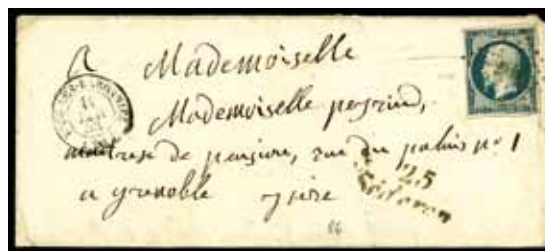 A Mademoiselle
Mademoiselle peyrin,
maitresse de pension, rue du palais n° 1
a grenoble isère
25
Séderon
86